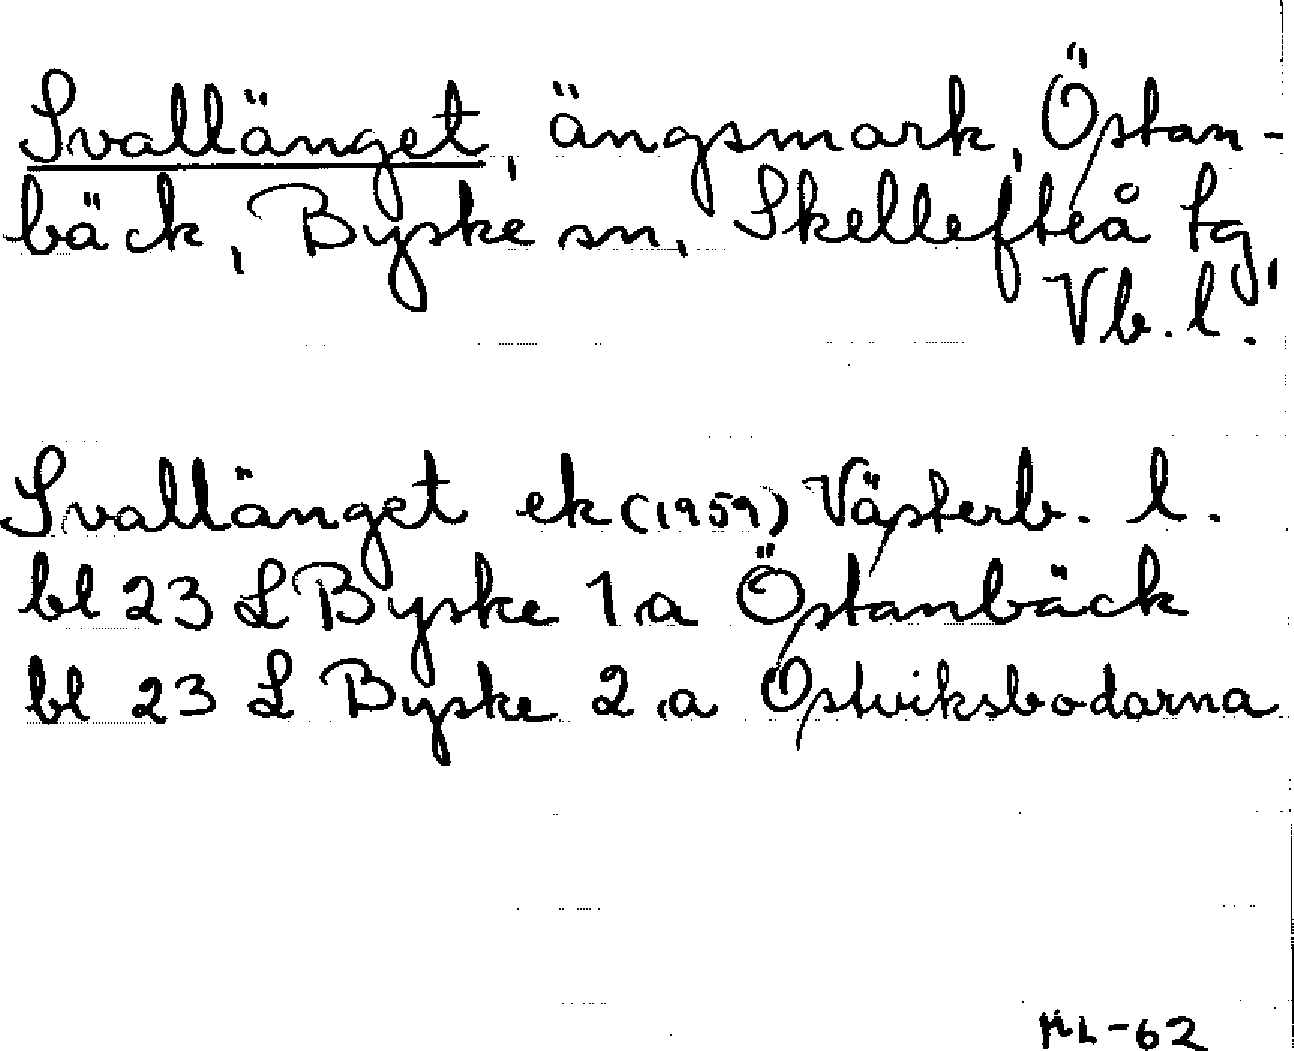 Svallänget, ängsmark, Östan-
bäck, Byske sn, Skellefteå tg,
Vb. l.
Svallänget ek (1959) Västerb. l.
bl 23 L Byske 1,a Östanbäck
bl 23 L Byske 2,a Östviksbodarna
ML-62